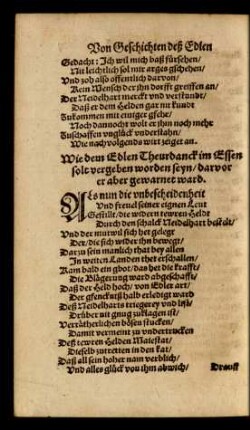 Von Geschichten deß Edlen
Gedacht: Ich wil mich baß fürsehen/
Mit leichtlich sol mir arges gschehen/
Und zoh also öffentlich darvon/
Kein Mensch der ihn dorfft greiffen an/
Der Neidelhart merckt und verstundt/
Daß er dem Helden gar nit kundt
Zukommen mit einiger gfehr/
Noch dannocht wolt er ihn noch mehr
Zuschaffen unglück understahn/
Wie nachvolgends wirt zeiget an.
Wie dem Edlen Theurdanck im Essen
solt vergeben worden seyn/ darvor
er aber gewarnet ward.
Als nun die unbescheidenheit
Und frevel seiner eignen Leut
Gestillt/ die widern tewren Heldt
Durch den schalck Neidelhart bestelt/
Und der mutwil sich het gelegt
Der/ die sich wider ihn bewegt/
Dar zu sein manlich that bey allen
In weiten Landen thet erschallen/
Kam bald ein gbot/ das her die krafft/
Die Blägerung ward abgeschafft/
Daß der Held hoch/ von Edler art/
Der gfencknuß halb erledigt ward
Deß Neidelharts triegerey und list/
Drüber nit gnug zuklagen ist/
Verrätherlichen bösen stucken/
Damit vermeint zu undertrucken
Deß tewren Helden Maiestat/
Dieselb zutretten in den kat/
Daß all sein hoher nam verblich/
Und alles glück von ihm abwich/
Drauff